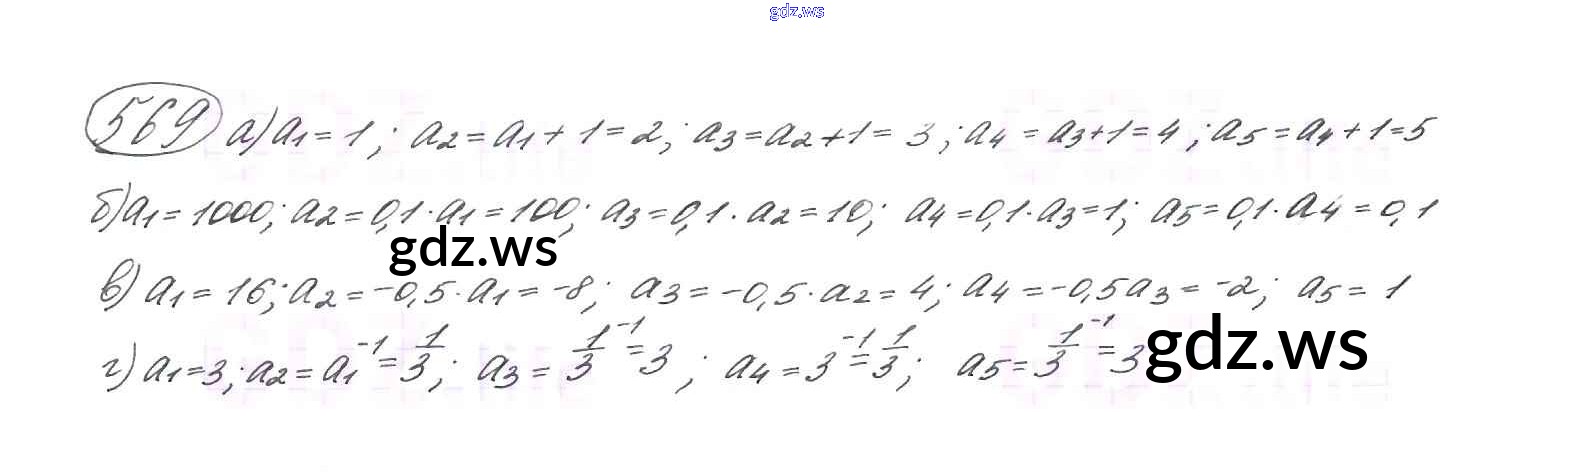 gdz.ws
569 а) a₁ = 1; a₂ = a₁ + 1 = 2; a₃ = a₂ + 1 = 3; a₄ = a₃ + 1 = 4; a₅ = a₄ + 1 = 5
б) a₁ = 1000; a₂ = 0,1 · a₁ = 100; a₃ = 0,1 · a₂ = 10; a₄ = 0,1 · a₃ = 1; a₅ = 0,1 · a₄ = 0,1
gdz.ws
в) a₁ = 16; a₂ = -0,5 · a₁ = -8; a₃ = -0,5 · a₂ = 4; a₄ = -0,5a₃ = -2; a₅ = 1
г) a₁ = 3; a₂ = a₁⁻¹ = 1/3; a₃ = 1/3⁻¹ = 3; a₄ = 3⁻¹ = 1/3; a₅ = 1/3⁻¹ = 3
gdz.ws